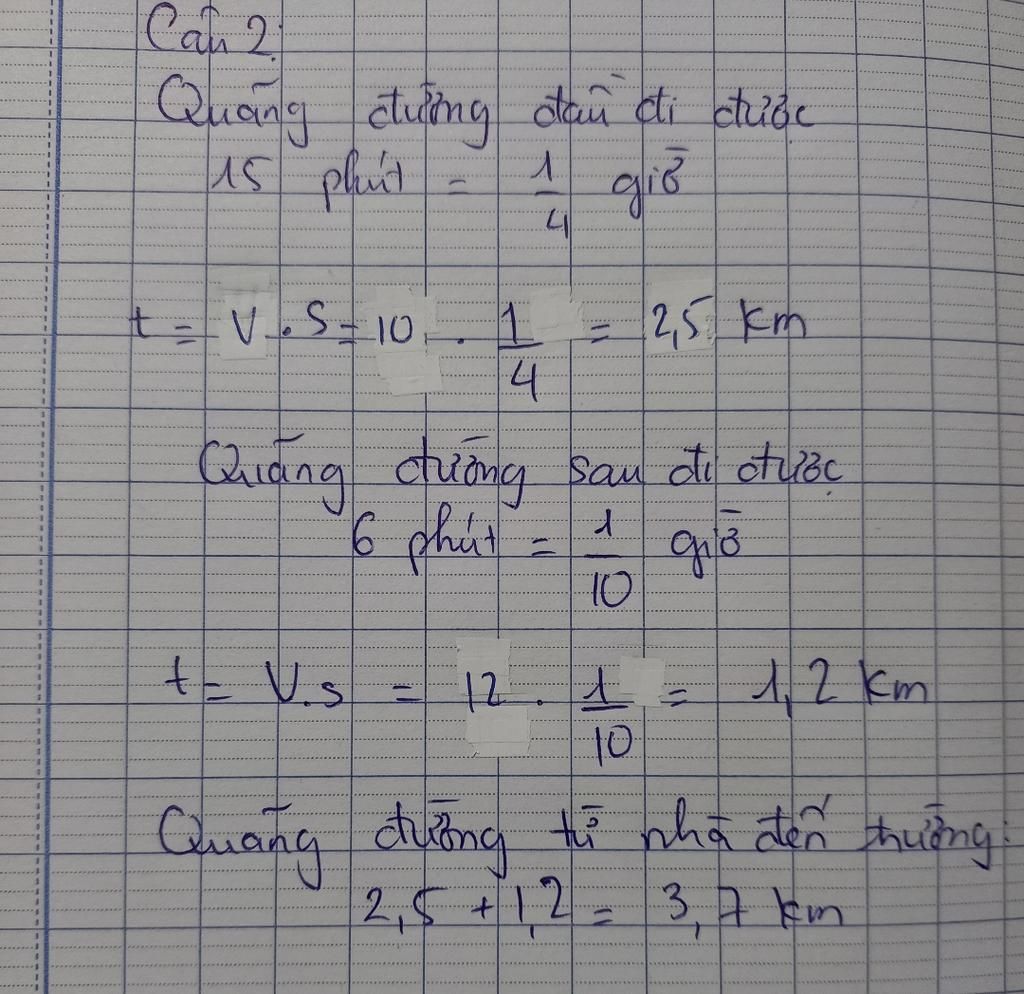 Câu 2:
Quãng đường đầu đi được
15 phút = 1/4 giờ
t = V . S = 10 . 1/4 = 2,5 km
Quãng đường sau đi được
6 phút = 1/10 giờ
t = V.s = 12 . 1/10 = 1,2 km
Quãng đường từ nhà đến trường:
2,5 + 1,2 = 3,7 km